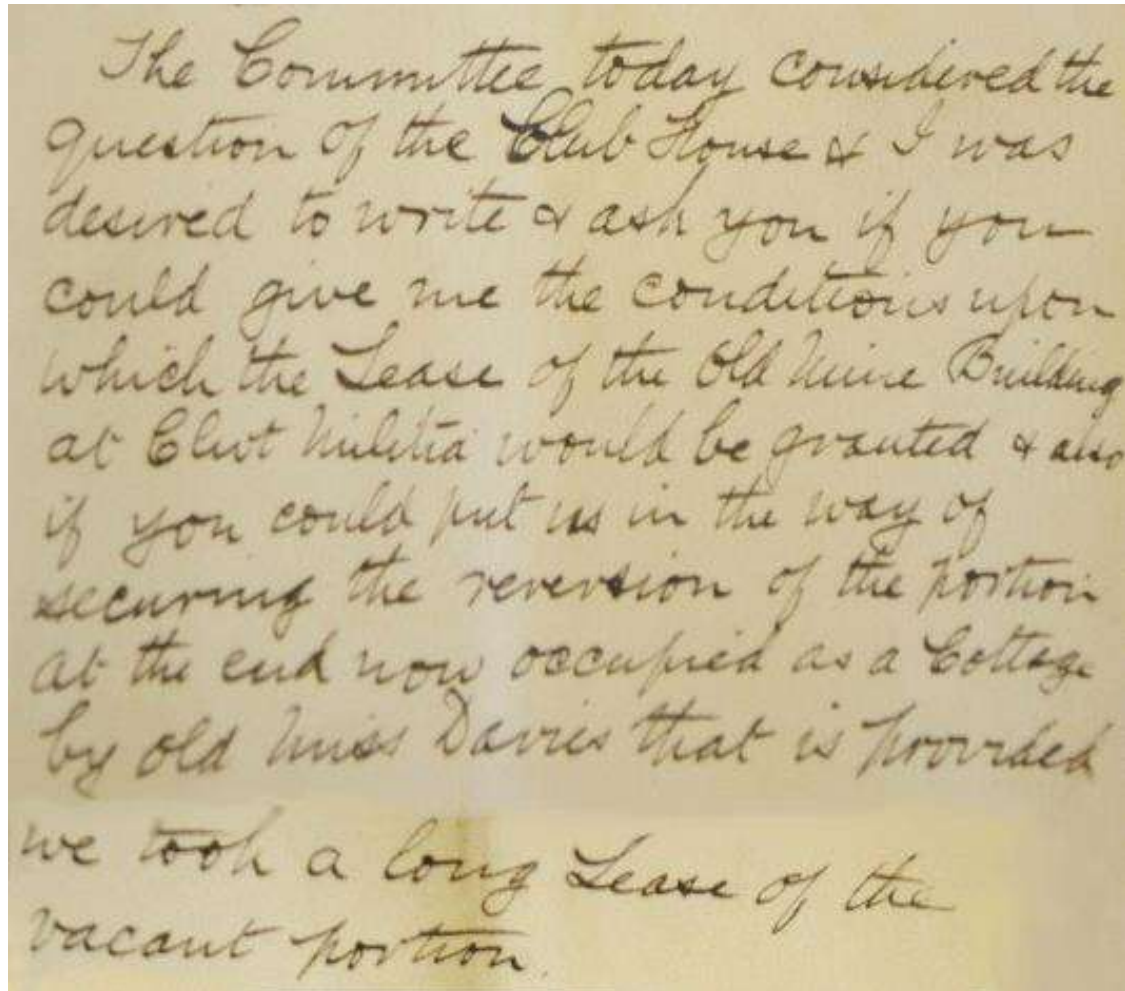 The Committee today considered the
question of the Club House & I was
desired to write & ask you if you
could give me the conditions upon
which the Lease of the Old Mine Building
at Clwt Militia would be granted & also
if you could put us in the way of
securing the reversion of the portion
at the end now occupied as a Cottage
by old Miss Davies that is provided
we took a long Lease of the
vacant portion.